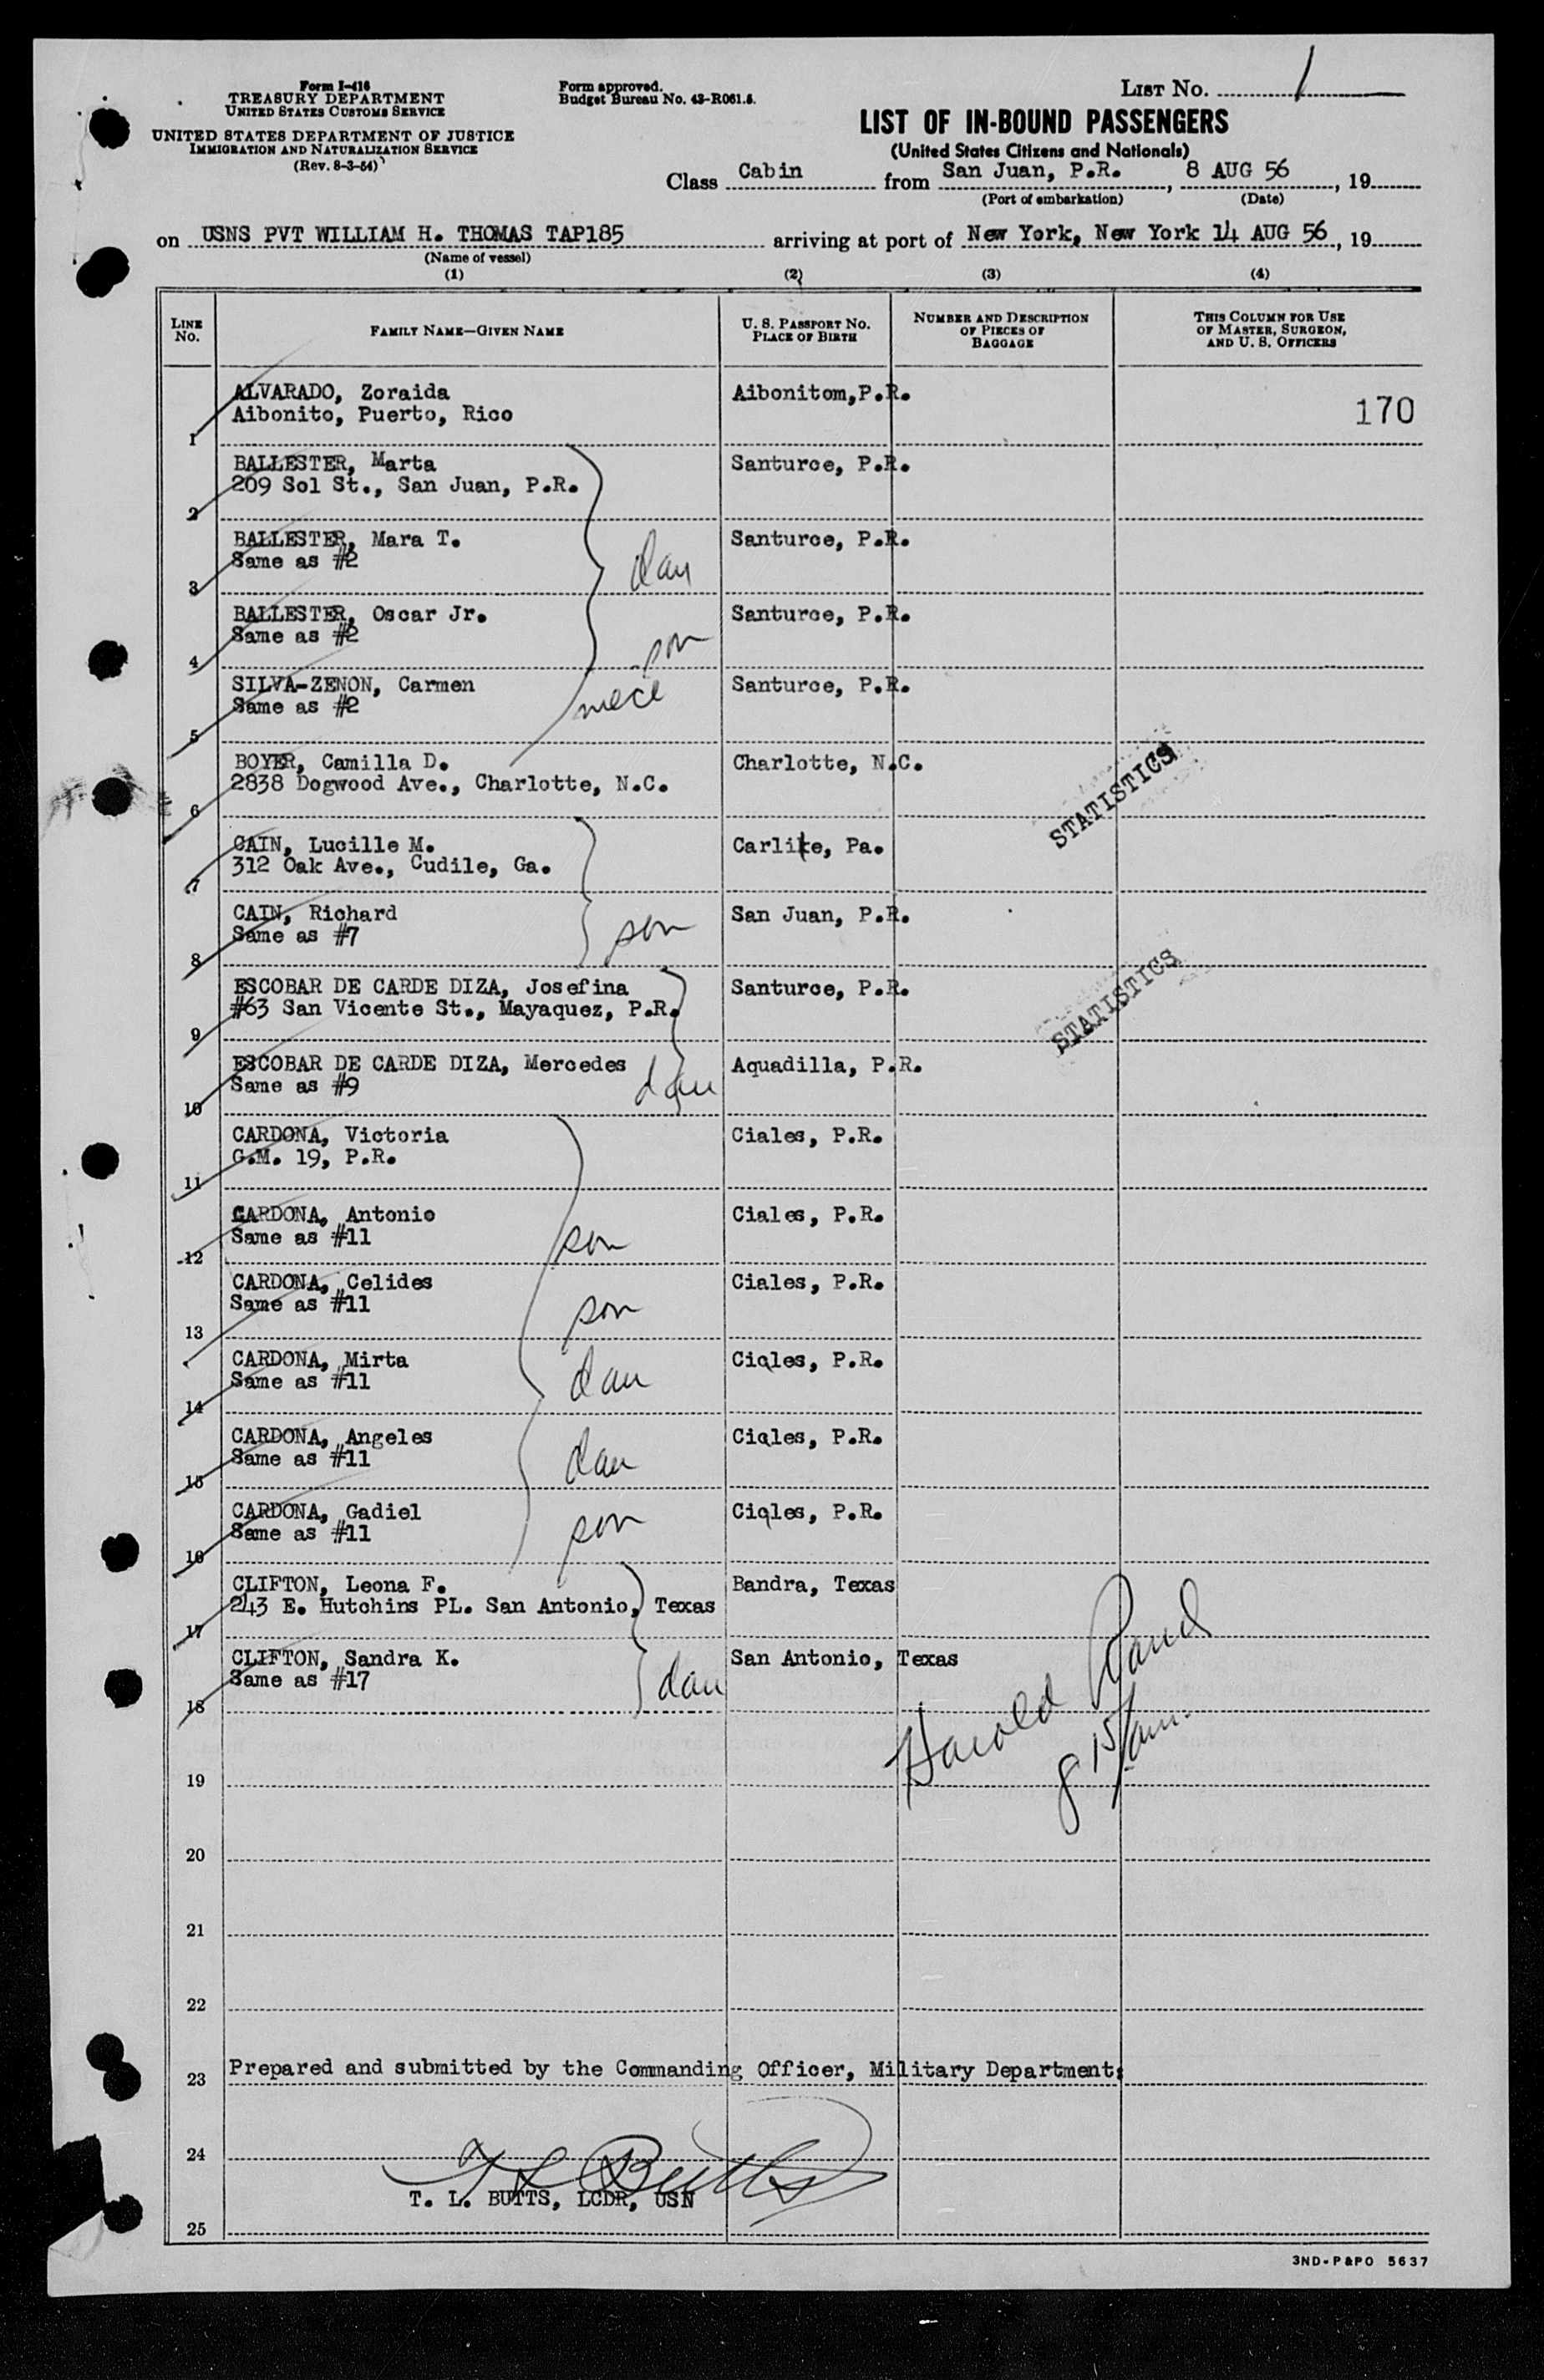 Form I-416
TREASURY DEPARTMENT
UNITED STATES CUSTOMS SERVICE
UNITED STATES DEPARTMENT OF JUSTICE
IMMIGRATION AND NATURALIZATION SERVICE
(Rev. 8-3-54)
Form approved.
Budget Bureau No. 43-R061.5.
LIST NO. 1
LIST OF IN-BOUND PASSENGERS
(United States Citizens and Nationals)
Class Cabin from San Juan, P.R., 8 AUG 56, 19
(Port of embarkation) (Date)
on USNS PVT WILLIAM H. THOMAS TAP185 arriving at port of New York, New York 14 AUG 56, 19
(Name of vessel)
(1) (2) (3) (4)
LINE NO. FAMILY NAME—GIVEN NAME U. S. PASSPORT NO. PLACE OF BIRTH NUMBER AND DESCRIPTION OF PIECES OF BAGGAGE THIS COLUMN FOR USE OF MASTER, SURGEON, AND U. S. OFFICERS
ALVARADO, Zoraida Aibonitom,P.R.
Aibonito, Puerto, Rico 170
1
BALLESTER, Marta Santurce, P.R.
209 Sol St., San Juan, P.R.
2
BALLESTER, Mara T. Santurce, P.R.
Same as #2 dau
3
BALLESTER, Oscar Jr. Santurce, P.R.
Same as #2 son
4
SILVA-ZENON, Carmen Santurce, P.R.
Same as #2 niece
5
BOYER, Camilla D. Charlotte, N.C.
2838 Dogwood Ave., Charlotte, N.C. STATISTICS
6
CAIN, Lucille M. Carlite, Pa.
312 Oak Ave., Cudile, Ga.
7
CAIN, Richard San Juan, P.R.
Same as #7 son
8
ESCOBAR DE CARDE DIZA, Josefina Santurce, P.R.
#63 San Vicente St., Mayaquez, P.R. STATISTICS
9
ESCOBAR DE CARDE DIZA, Mercedes Aquadilla, P.R.
Same as #9 dau
10
CARDONA, Victoria Ciales, P.R.
G.M. 19, P.R.
11
CARDONA, Antonio Ciales, P.R.
Same as #11 son
12
CARDONA, Celides Ciales, P.R.
Same as #11 son
13
CARDONA, Mirta Ciqles, P.R.
Same as #11 dau
14
CARDONA, Angeles Ciqles, P.R.
Same as #11 dau
15
CARDONA, Gadiel Ciqles, P.R.
Same as #11 son
16
CLIFTON, Leona F. Bandra, Texas
243 E. Hutchins PL. San Antonio, Texas
17
CLIFTON, Sandra K. San Antonio, Texas
Same as #17 dau
18
Harold
8 15/am.
19
20
21
22
23 Prepared and submitted by the Commanding Officer, Military Department:
24
T L Butts
T. L. BUTTS, LCDR, USN
25
3ND-P&PO 5637